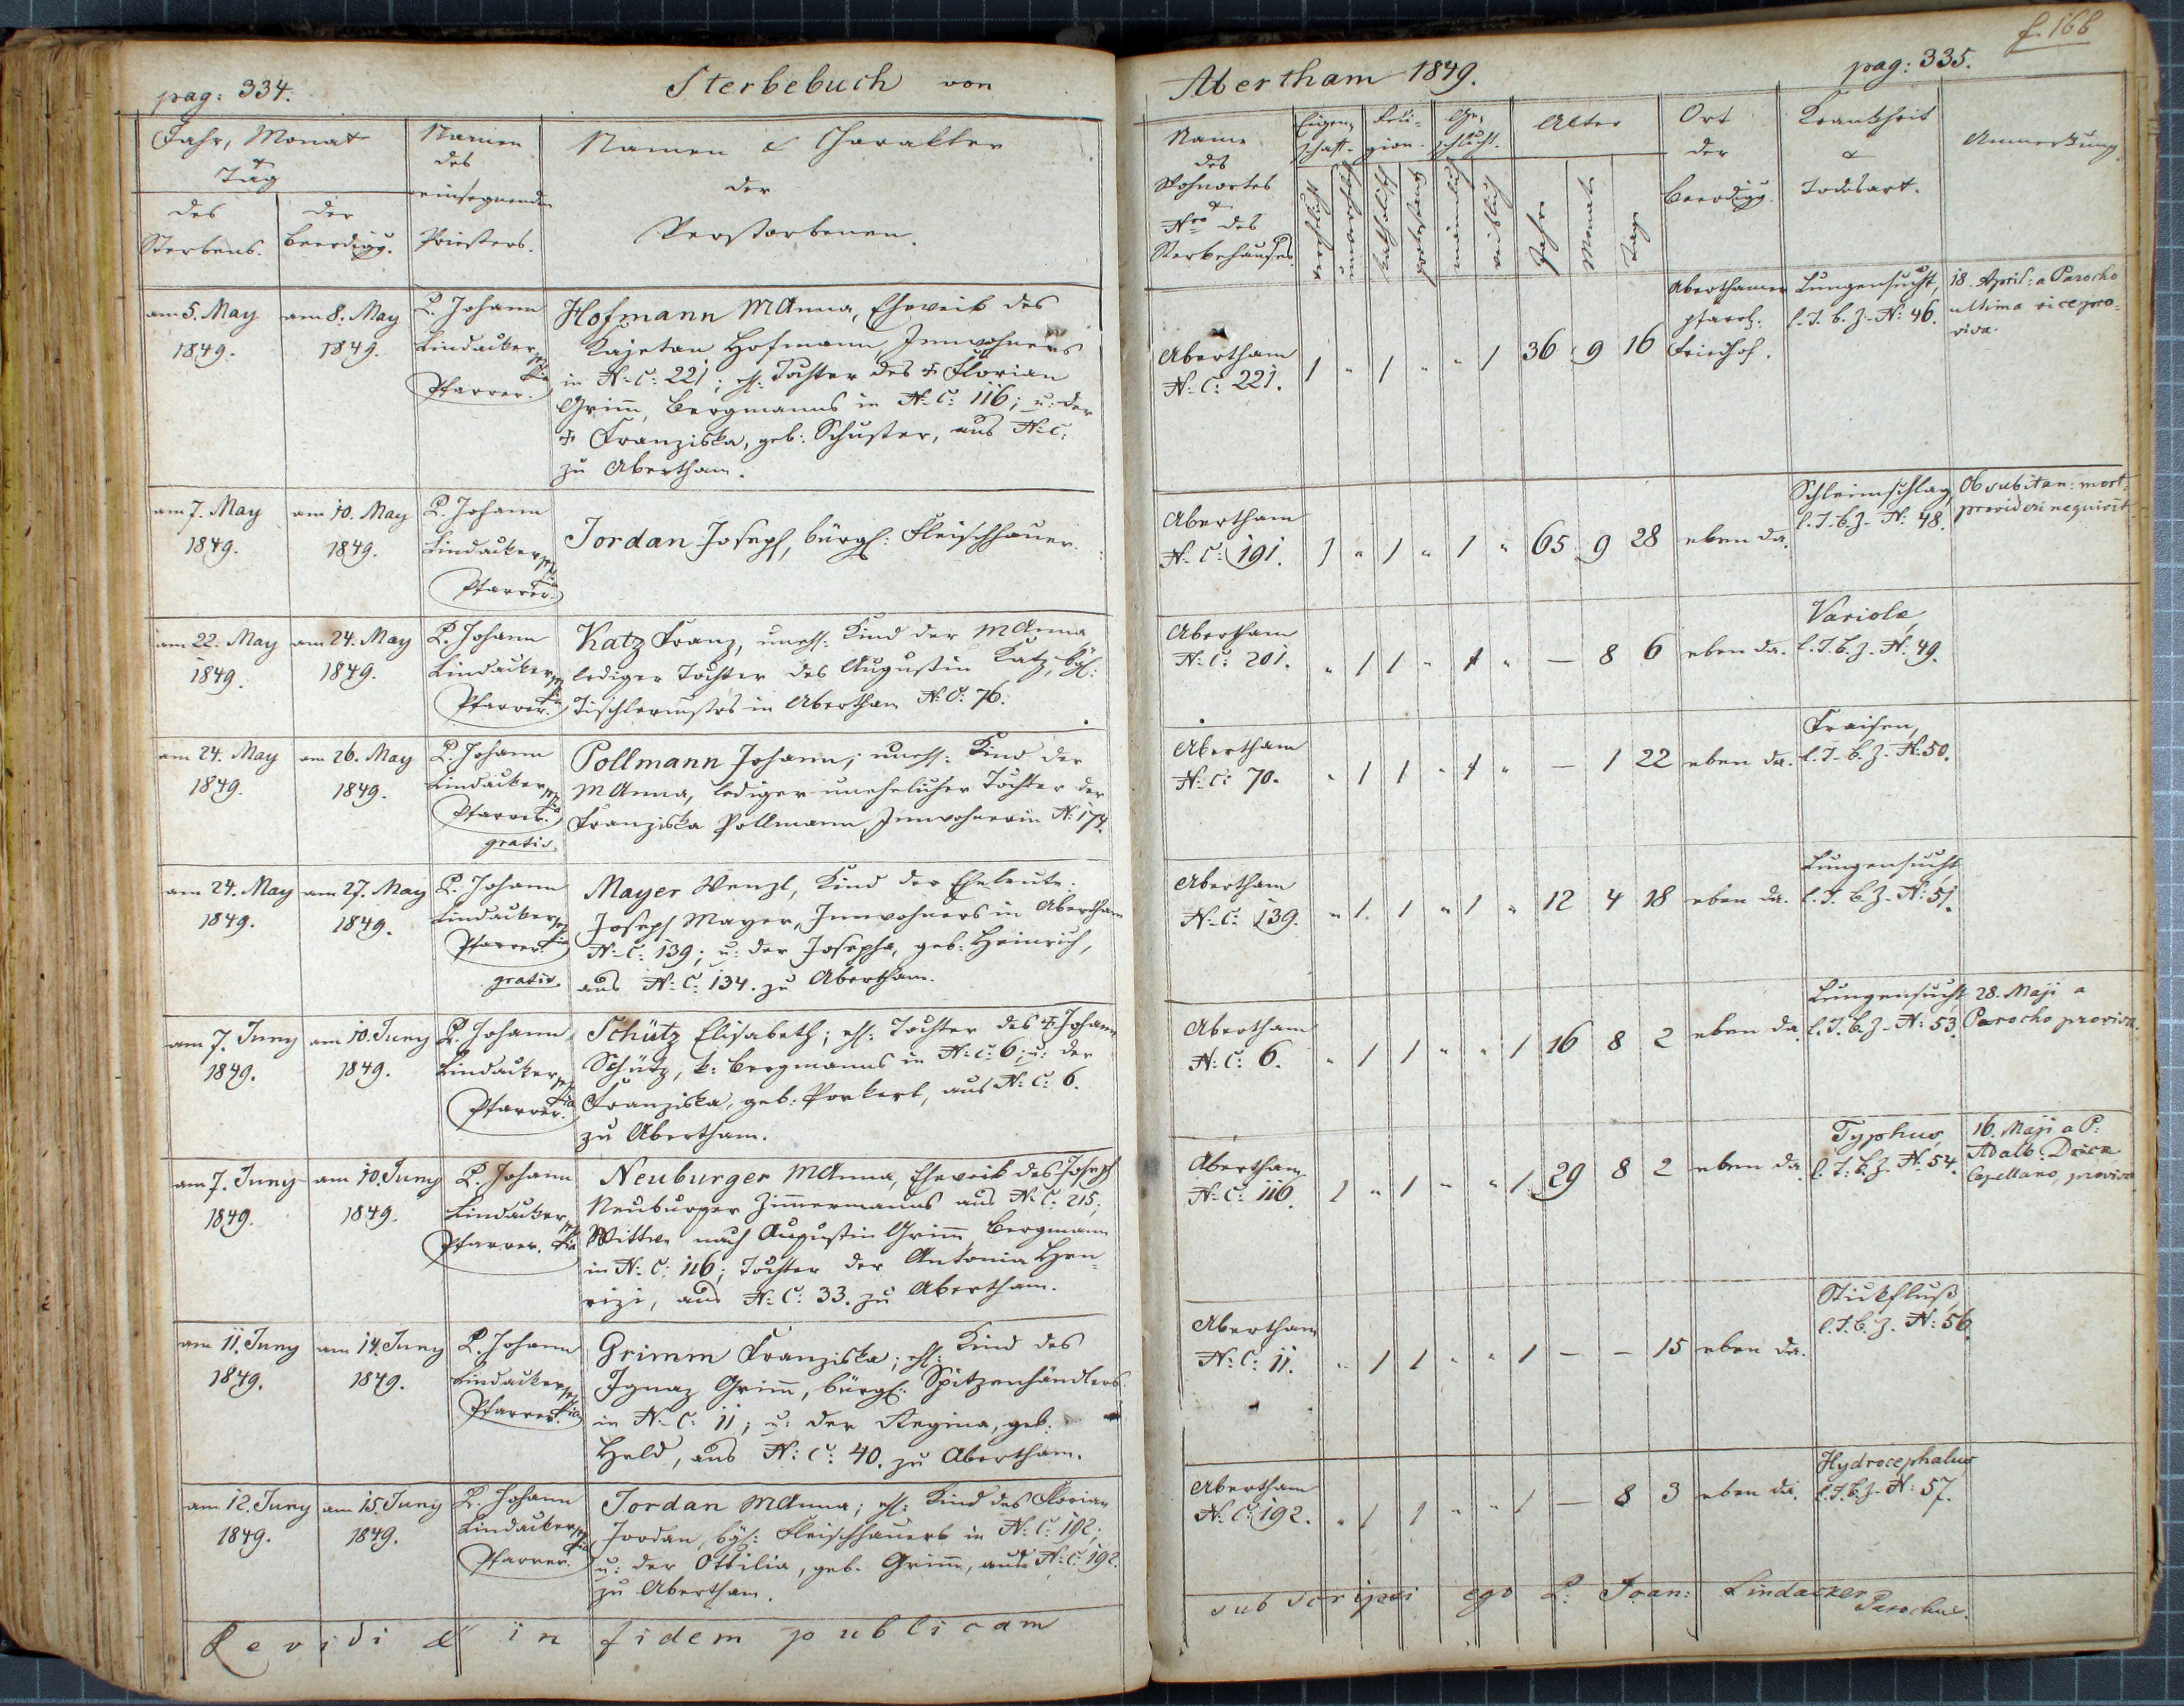 pag: 334.
Sterbebuch von
Jahr, Monat
&
Tag
des
Sterbens.
der
Beerdigg.
Namen
des
einsegnenden
Priesters.
Namen & Charakter
der
Verstorbenen.
am 5. May
1849.
am 8. May
1849.
P. Johann
Lindacker
Pfarrer.
Hofmann MAnna, Eheweib des
Kajetan Hofmann, Innwohners
in N: C: 221; eh: Tochter des † Florian
Grim̅, Bergmanns in N: C: 116; u: der
† Franziska, geb: Schuster, aus N: C:
zu Abertham.
am 7. May
1849.
am 10. May
1849.
P. Johann
Lindacker
Pfarrer.
Jordan Joseph, bürgl: Fleischhauer.
am 22. May
1849.
am 24. May
1849.
P. Johann
Lindacker
Pfarrer.
Katz Franz, uneh: Kind der MAnna
lediger Tochter des Augustin Katz, bgl:
Tischlermstrs in Abertham N: C: 76.
am 24. May
1849.
am 26. May
1849.
P. Johann
Lindacker
Pfarrer.
gratis.
Pollmann Johann; uneh: Kind der
MAnna, lediger unehelicher Tochter der
Franziska Pollmann Innwohnerin N: 174.
am 24. May
1849.
am 27. May
1849.
P. Johann
Lindacker
Pfarrer.
gratis.
Mayer Wenzl, Kind der Eheleute:
Joseph Mayer, Innwohners in Abertham
N: C: 139; u: der Josepha, geb: Heinrich,
aus N: C: 134. zu Abertham.
am 7. Juny
1849.
am 10. Juny
1849.
P. Johann
Lindacker
Pfarrer.
Schütz Elisabeth; eh: Tochter des † Johann
Schütz, k: Bergmanns in N: C: 6; u: der
Franziska, geb: Porkert, aus N: C: 6.
zu Abertham.
am 7. Juny
1849.
am 10. Juny
1849.
P. Johann
Lindacker
Pfarrer.
Neuburger MAnna, Eheweib des Joseph
Neuburger Zimmermanns aus N: C: 215;
Wittwe nach Augustin Grim̅, Bergmann
in N: C: 116; Tochter der Antonia Hen-
rizi, aus N: C: 33. zu Abertham.
am 11. Juny
1849.
am 14. Juny
1849.
P. Johann
Lindacker
Pfarrer.
Grimm Franziska; eh: Kind des
Ignaz Grim̅, bürgl: Spitzenhändlers
in N: C: 11; u: der Regina, geb:
Held, aus N: C: 40. zu Abertham.
am 12. Juny
1849.
am 15. Juny
1849.
P. Johann
Lindacker
Pfarrer.
Jordan MAnna; eh: Kind des Florian
Jordan, bgl: Fleischhauers in N: C: 192;
u: der Ottilia, geb. Grim̅, aus N: C: 192.
zu Abertham.
Revidi & in fidem publicam
f. 168
Abertham 1849.
pag: 335.
Name
des
Wohnortes
&
Nro des
Sterbehauses.
Eigen-
schaft.
verehlicht
unverehlicht
Reli-
gion.
katholisch
protestant.
Ge-
schlecht.
männlich
weiblich
Alter
Jahre
Monate
Tage
Ort
der
Beerdigg.
Krankheit
&
Todesart.
Anmerkung.
Abertham
N: C: 221.
1 " 1 " " 1 36 9 16
Aberthamer
pfarrl:
Friedhof.
Lungensucht,
l. T. b. Z. N: 46.
18. April: a Parocho
ultima vice pro-
visa.
Abertham
N: C: 191.
1 " 1 " 1 " 65 9 28 eben da.
Schleimschlag,
l. T. b. Z. N: 48.
Ob subitan: mort:
provideri nequivit.
Abertham
N: C: 201.
" 1 1 " 1 " — 8 6 eben da.
Variola,
l. T. b. Z. N: 49.
Abertham
N: C: 70.
" 1 1 " 1 " — 1 22 eben da.
Fraisen,
l. T. b. Z. N: 50.
Abertham
N: C: 139.
" 1 1 " 1 " 12 4 18 eben da.
Lungensucht,
l. T. b. Z. N: 51.
Abertham
N: C: 6.
" 1 1 " " 1 16 8 2 eben da.
Lungensucht,
l. T. b. Z. N: 53.
28. Maji a
Parocho provisa.
Abertham
N: C: 116.
1 " 1 " " 1 29 8 2 eben da.
Typhus,
l. T. b. Z. N: 54.
16. Maji a P:
Adalb:
Capellano provisa
Abertham
N: C: 11.
" 1 1 " " 1 — — 15 eben da.
Stickfluß,
l. T. b. Z. N: 56.
Abertham
N: C: 192.
" 1 1 " " 1 — 8 3 eben da.
Hydrocephalus
l. T. b. Z. N: 57.
subscripsi ego P. Joan: Lindacker
Parochus.